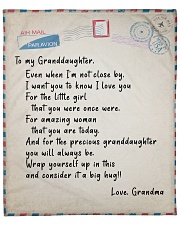 AIR MAIL
PAR AVION
To my Granddaughter,
Even when I'm not close by,
I want you to know I love you
For the little girl
that you were once were.
For amazing woman
that you are today.
And for the precious granddaughter
you will always be.
Wrap yourself up in this
and consider it a big hug!!
Love, Grandma